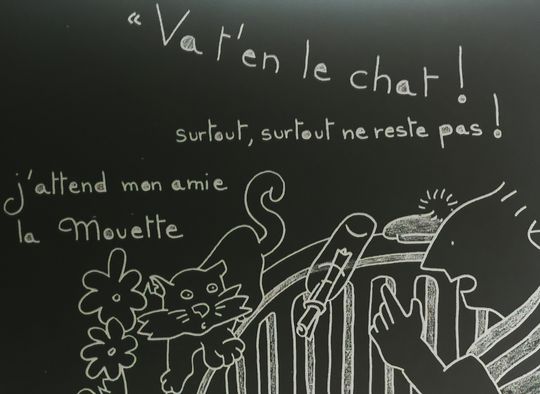 " Va t'en le chat !
surtout, surtout ne reste pas !
j'attend mon amie
la Mouette